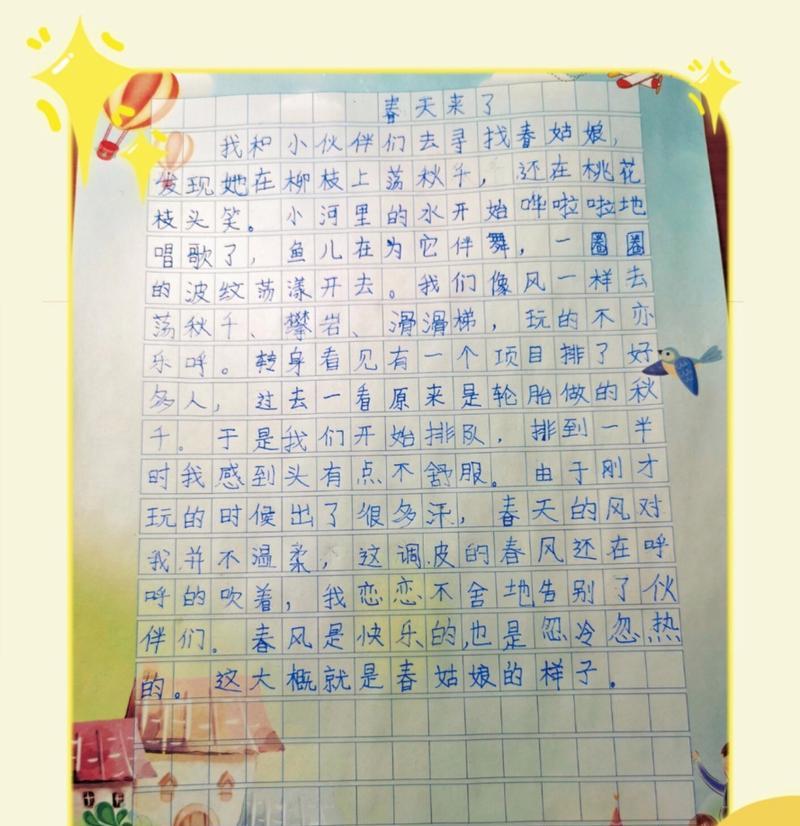 春天来了
我和小伙伴们去寻找春姑娘，
发现她在柳枝上荡秋千，还在桃花
枝头笑。小河里的水开始哗啦啦地
唱歌了，鱼儿在为它伴舞，一圈圈
的波纹荡漾开去。我们像风一样去
荡秋千、攀岩、滑滑梯，玩的不亦
乐呼。转身看见有一个项目排了好
多人，过去一看原来是轮胎做的秋
千。于是我们开始排队，排到一半
时我感到头有点不舒服。由于刚才
玩的时候出了很多汗，春天的风对
我并不温柔，这调皮的春风还在呼
呼的吹着，我恋恋不舍地告别了伙
伴们。春风是快乐的，也是忽冷忽热
的。这大概就是春姑娘的样子。